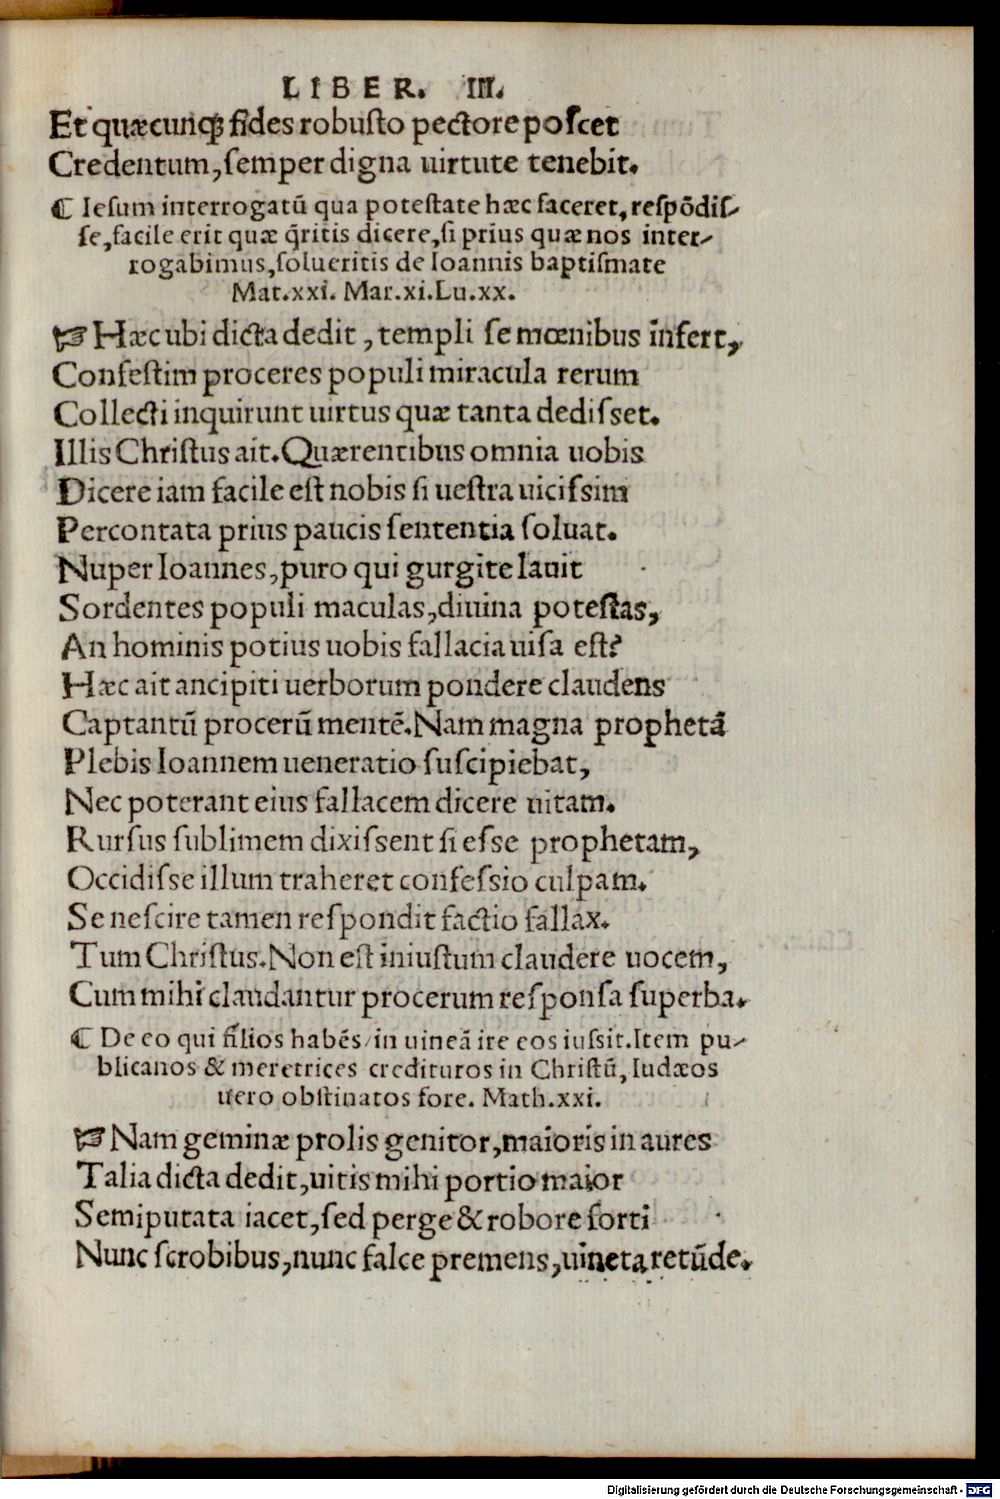 LIBER. III.
Et quæcunqꝫ fides robusto pectore poſcet
Credentum, ſemper digna uirtute tenebit.
⁋ Ieſum interrogatũ qua poteſtate hæc faceret, reſpõdiſ⸗
ſe, facile erit quæ q̃ritis dicere, ſi prius quæ nos inter⸗
rogabimus, ſolueritis de Ioannis baptiſmate
Mat.xxi. Mar.xi.Lu.xx.
☞ Hæc ubi dicta dedit, templi ſe mœnibus infert,
Confeſtim proceres populi miracula rerum
Collecti inquirunt uirtus quæ tanta dediſſet.
Illis Chriſtus ait. Quærentibus omnia uobis
Dicere iam facile eſt nobis ſi ueſtra uiciſſim
Percontata prius paucis ſententia ſoluat.
Nuper Ioannes, puro qui gurgite lauit
Sordentes populi maculas, diuina poteſtas,
An hominis potius uobis fallacia uiſa eſt?
Hæc ait ancipiti uerborum pondere claudens
Captantũ procerũ mentẽ. Nam magna prophetã
Plebis Ioannem ueneratio ſuſcipiebat,
Nec poterant eius fallacem dicere uitam.
Rurſus ſublimem dixiſſent ſi eſſe prophetam,
Occidiſſe illum traheret confeſſio culpam.
Se neſcire tamen reſpondit factio fallax.
Tum Chriſtus. Non eſt iniuſtum claudere uocem,
Cum mihi claudantur procerum reſponſa ſuperba.
⁋ De eo qui filios habẽs/in uineã ire eos iuſſit. Item pu⸗
blicanos & meretrices credituros in Chriſtũ, Iudæos
uero obſtinatos fore. Math.xxi.
☞ Nam geminæ prolis genitor, maioris in aures
Talia dicta dedit, uitis mihi portio maior
Semiputata iacet, ſed perge & robore forti
Nunc ſcrobibus, nunc falce premens, uineta retũde.
Digitalisierung gefördert durch die Deutsche Forschungsgemeinschaft - DFG